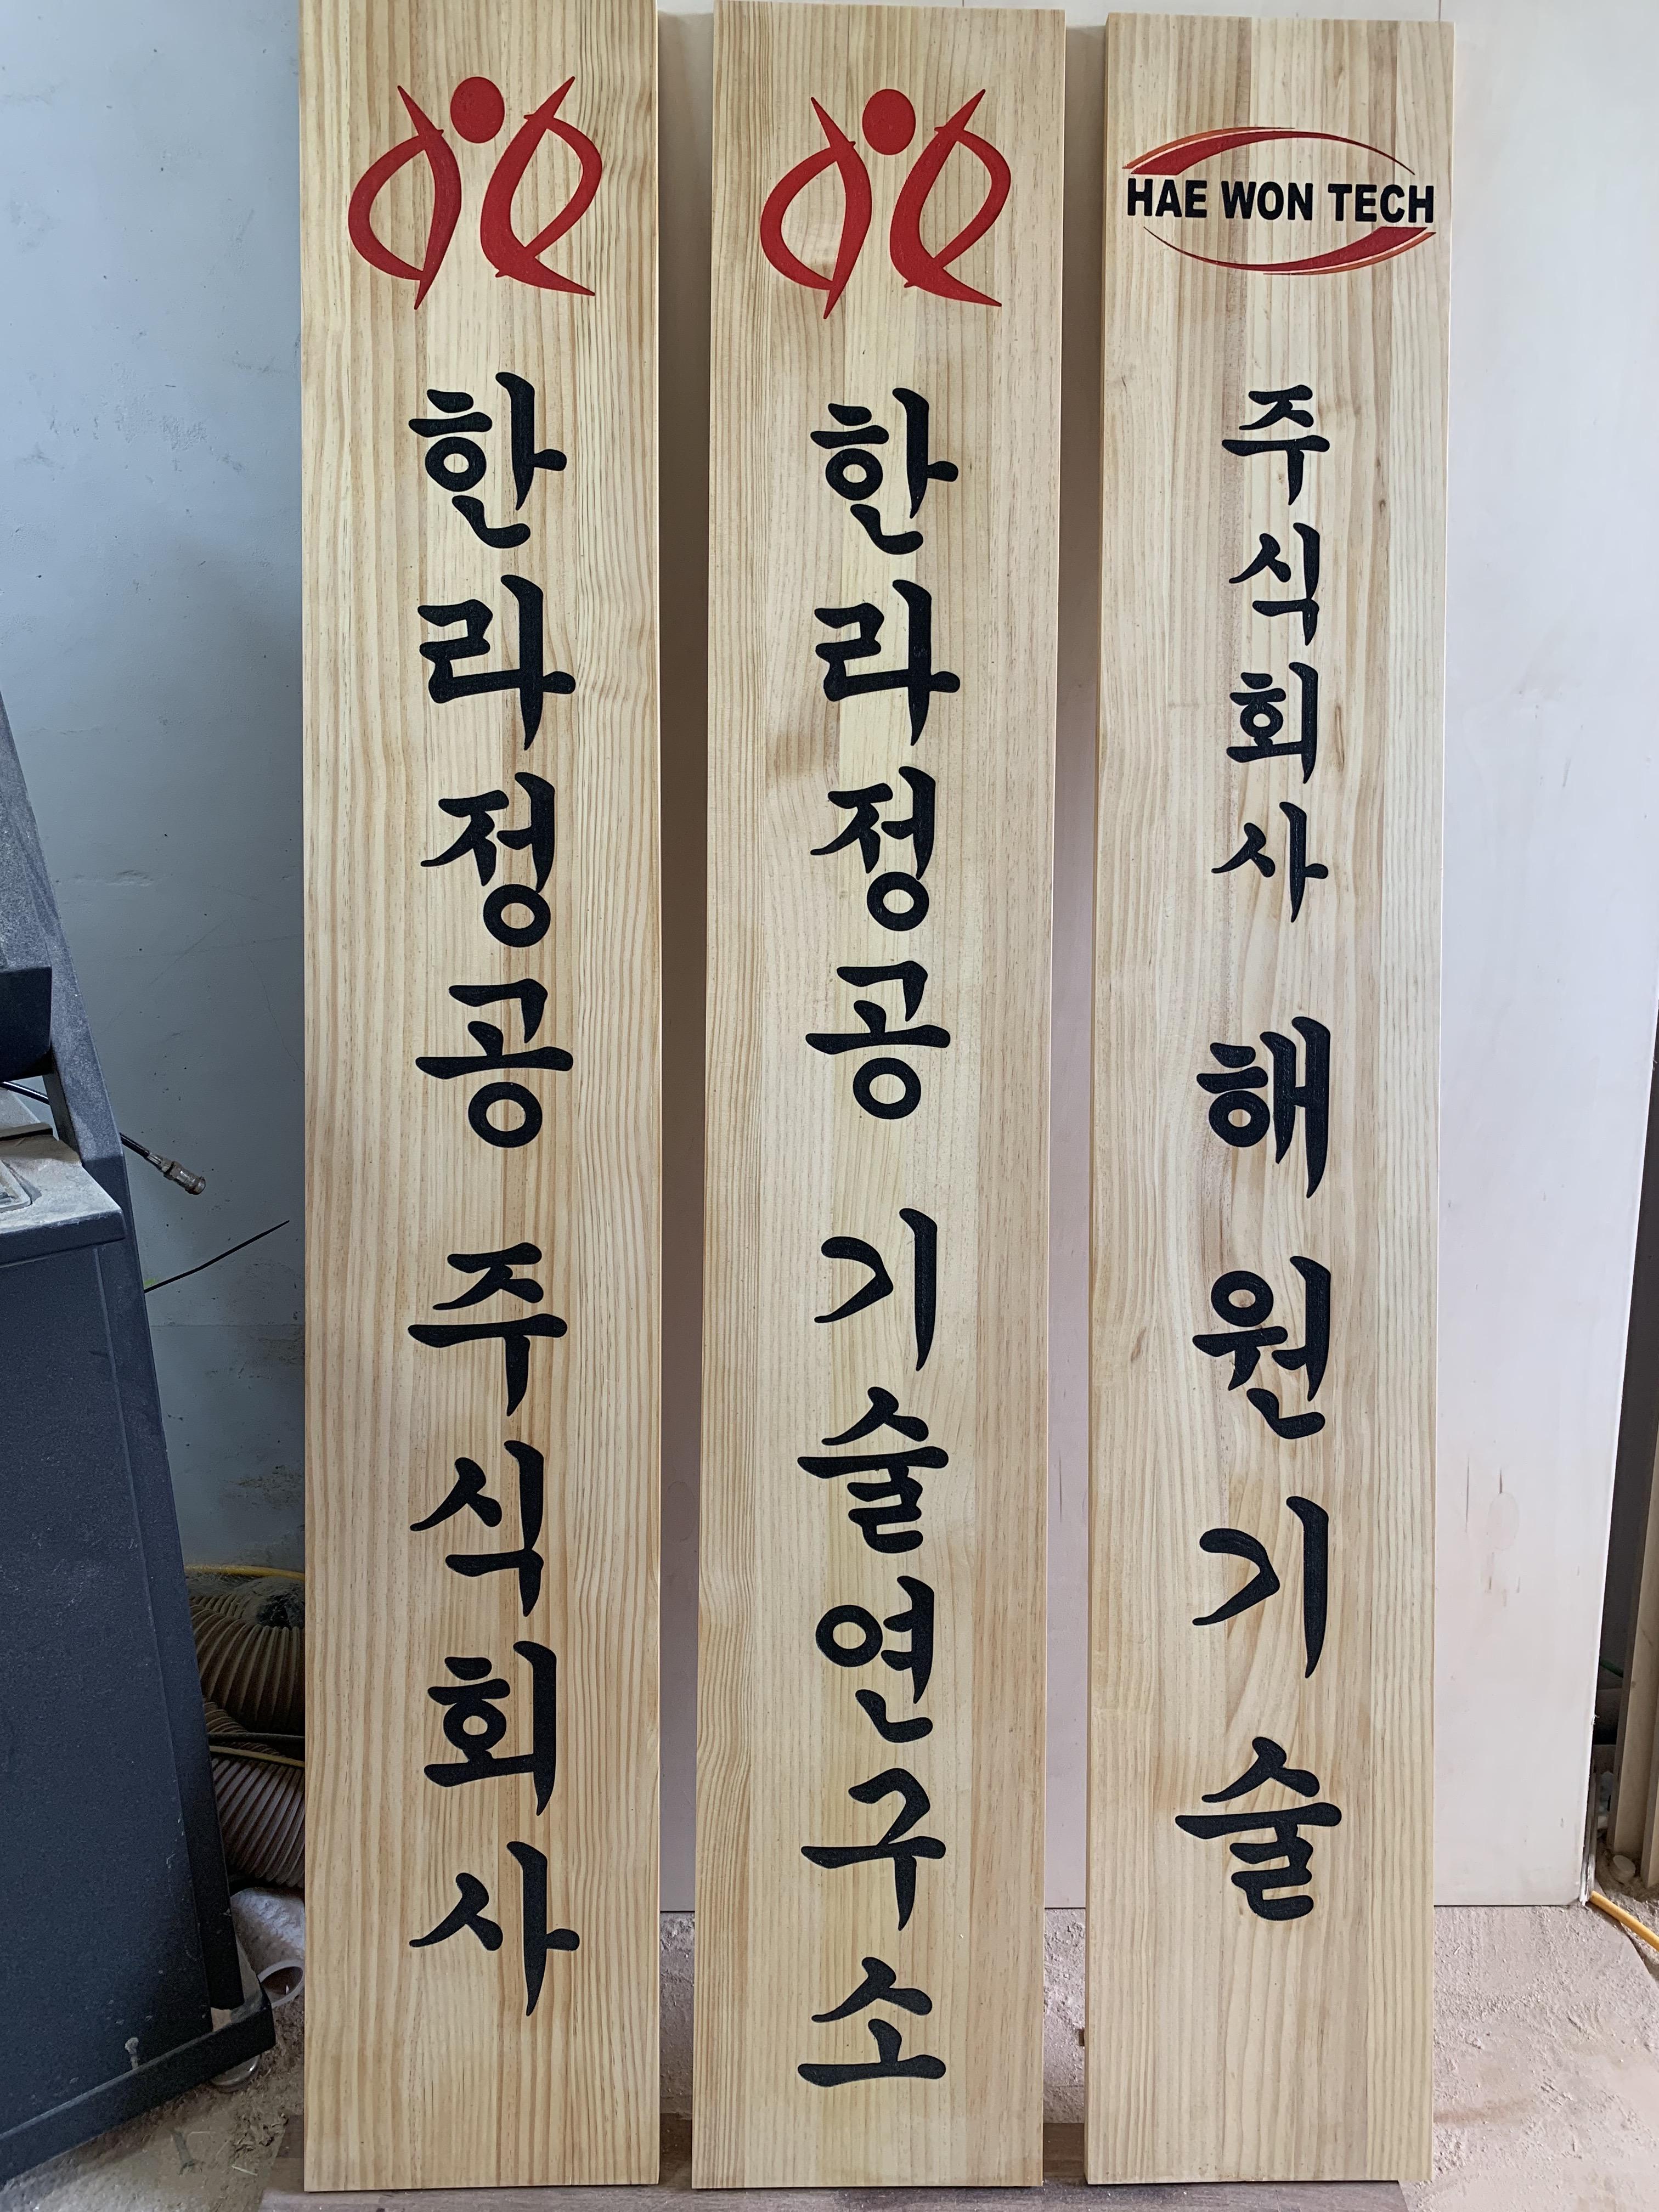 한라정공 주식회사
한라정공 기술연구소
HAE WON TECH
주식회사 해원기술